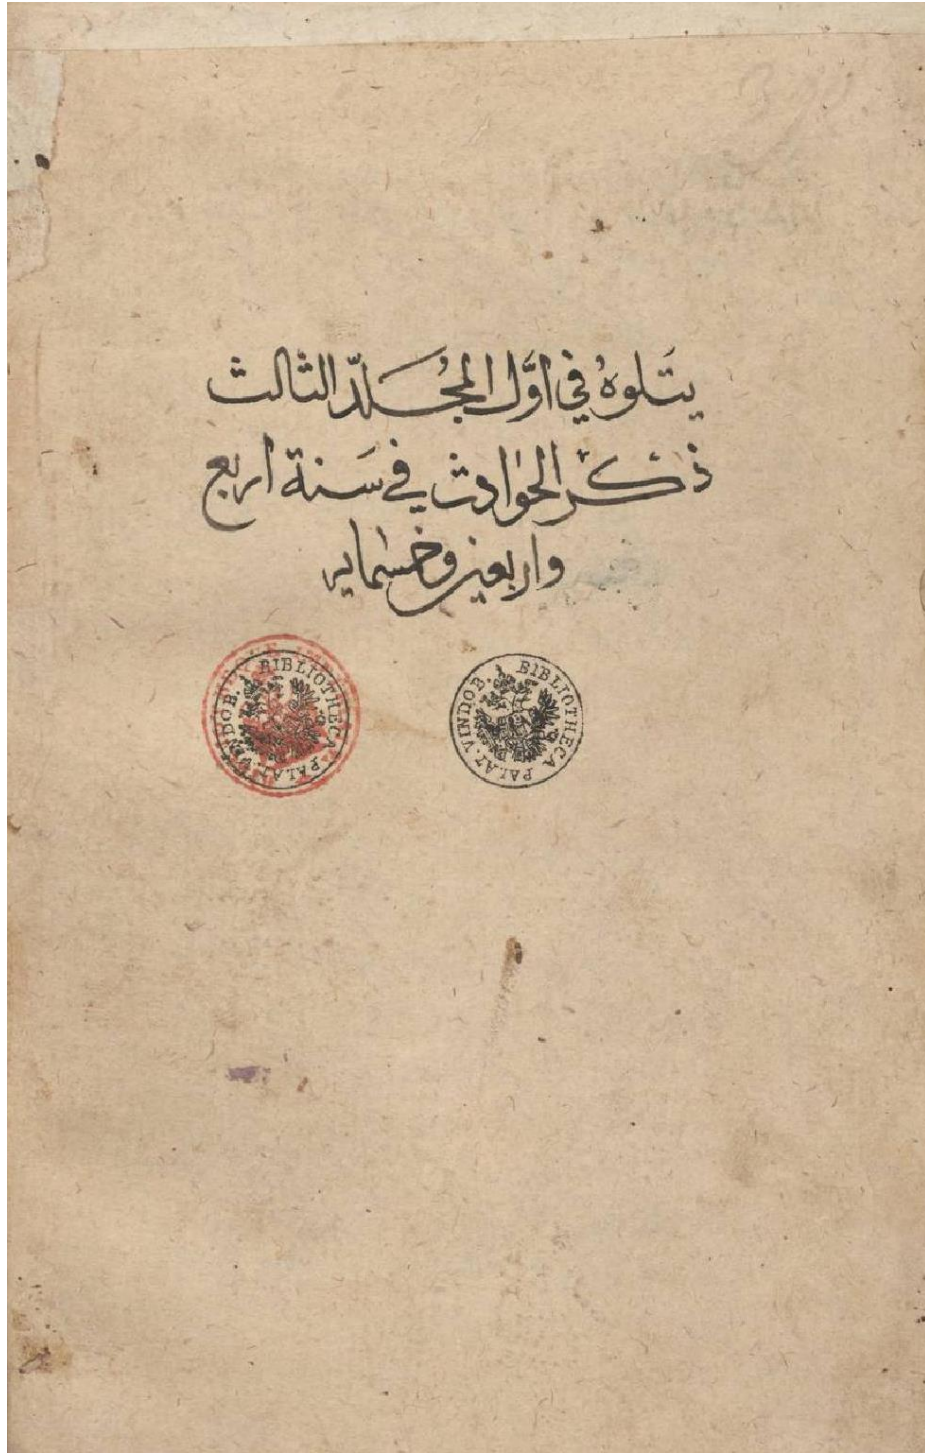 يتَلوهُ في اوَّل المجُلدّ الثالث
ذكر الحوادث في سَنة اربع
واربعين وخمسمايه
BIBLIOTHECA PALAT. VINDOB.
BIBLIOTHECA PALAT. VINDOB.